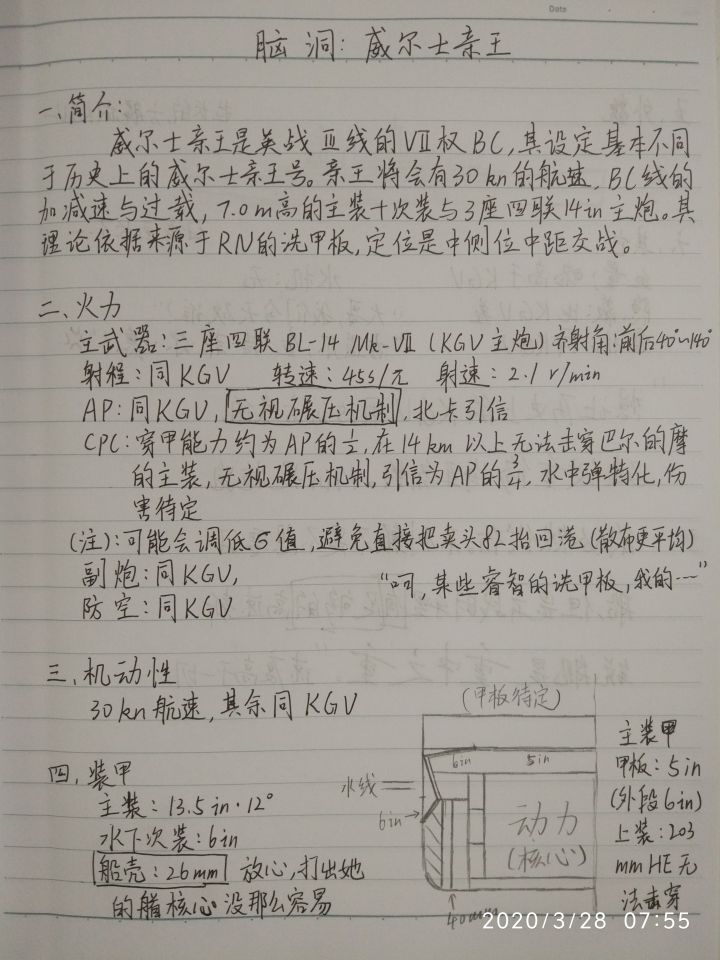 Date
脑洞:威尔士亲王
一、简介:
威尔士亲王是英战Ⅱ线的VII权BC,其设定基本不同
于历史上的威尔士亲王号。亲王将会有30kn的航速,BC线的
加减速与过载,7.0m高的主装+次装与3座四联14in主炮。其
理论依据来源于RN的洗甲板,定位是中侧位中距交战。
二、火力
主武器:三座四联BL-14 Mk-VII(KGV主炮)齐射角:前后40°~140°
射程:同KGV 转速:45s/元 射速:2.1r/min
AP:同KGV,无视碾压机制,北卡引信
CPC:穿甲能力约为AP的1/2,在14km以上无法击穿巴尔的摩
的主装,无视碾压机制,引信为AP的3/4,水中弹特化,伤
害待定
(注):可能会调低σ值,避免直接把卖头82抬回港(散布更平均)
副炮:同KGV, "呵,某些睿智的洗甲板,我的…"
防空:同KGV
三、机动性
30kn航速,其余同KGV
四、装甲
主装:13.5in·12°
水下次装:6in
船壳:26mm 放心,打出她
的艏核心没那么容易
(甲板待定)
6in 5in
水线
6in
动力
(核心)
40mm
主装甲
甲板:5in
(外段6in)
上装:203
mmHE无
法击穿
2020/3/28 07:55